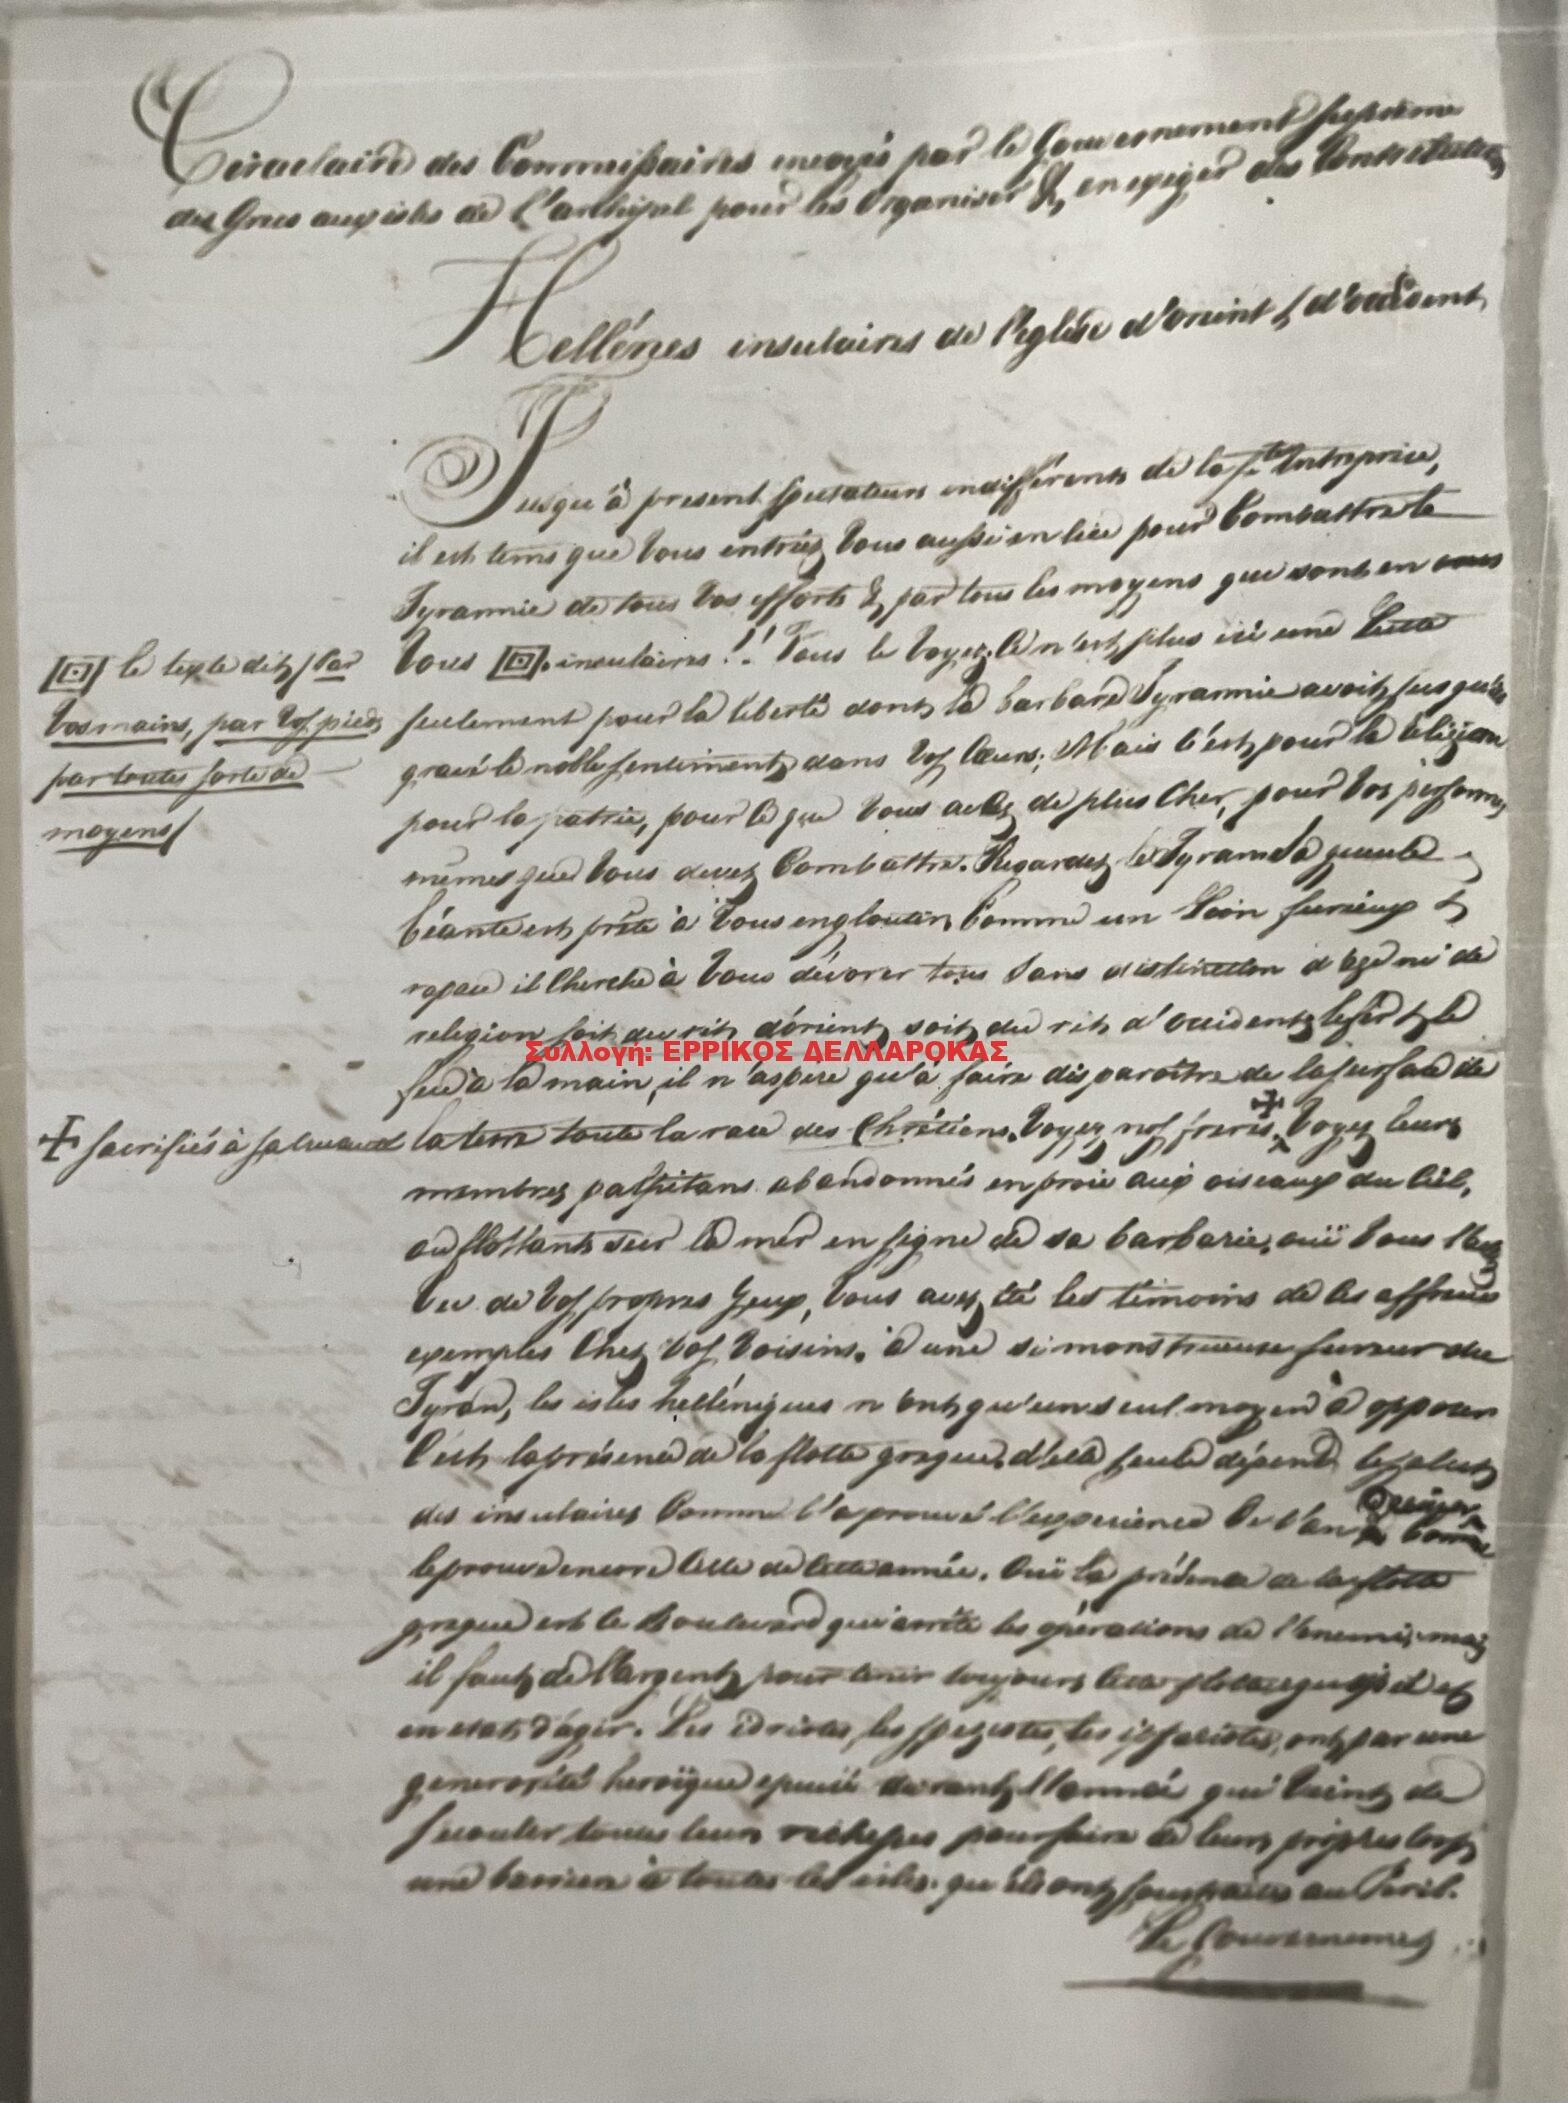 Circulaire des Commissaires envoyés par le Gouvernement suprème
des Grecs aux isles de l'archipel pour les organiser & en exiger des Contributions
Hellénes insulaires de l'eglise d'orient & d'occident,
Jusqu'à present spectateurs indifférents de la Ste Entreprise,
il est tems que vous entriez vous aussi en lice pour Combattre la
Tyrannie de tous vos efforts & par tous les moyens qui sont en
vous insulaires!! Vous le voyez, ce n'est plus ici une Lutte
le texte dit / Par
vos mains, par vos pieds
par toutes sorte de
moyens /
seulement pour la liberté dont la barbare Tyrannie avoit jusqu'ici
gravé le noble sentiment dans vos Cœurs; Mais c'est pour la Religion
pour la patrie, pour ce que vous avez de plus Cher, pour vos personnes
mêmes que vous devez Combattre. Regardez le Tyran Sa gueule
béante est prête à vous engloutir, Comme un Lion furieux &
rapace il Cherche à vous dévorer tous Sans distinction d'age ni de
religion soit du rit d'orient, soit du rit d'occident, le fer & le
Συλλογή: ΕΡΡΙΚΟΣ ΔΕΛΛΑΡΟΚΑΣ
feu à la main, il n'aspire qu'à faire disparoître de la surface de
la terre toute la race des Chrétiens. Voyez nos freres, Voyez leurs
sacrifiés à sa cruauté
membres palpitans abandonnés en proie aux oiseaux du Ciel,
ou flottants sur la mer en signe de sa barbarie, ouï vous l'avez
vu de vos propres yeux, vous avez été les témoins de ces affreux
exemples Chez vos voisins. à une si monstrueuse fureur du
Tyran, les isles helléniques n'ont qu'un seul moyen à opposer
C'est la présence de la flotte greque, d'elle seule dépend le salut
des insulaires Comme l'a prouvé l'experience de l'an
le prouve encore Celle de Cette année. Ouï la présence de la flotte
greque est le Boulevard qui arrête les opérations de l'enemi, mais
il faut de l'Argent pour tenir toujours Cette flotte
en etat d'agir. Les idriotes, les spezziotes, les ipsariotes, ont par une
generosité heroïque epuisé durant l'année qui vient de
s'ecouler toutes leurs richesses pour faire de leurs propres Corps
une barriere à toutes les isles qu'ils ont soustraites au Peril.
Le Gouvernement